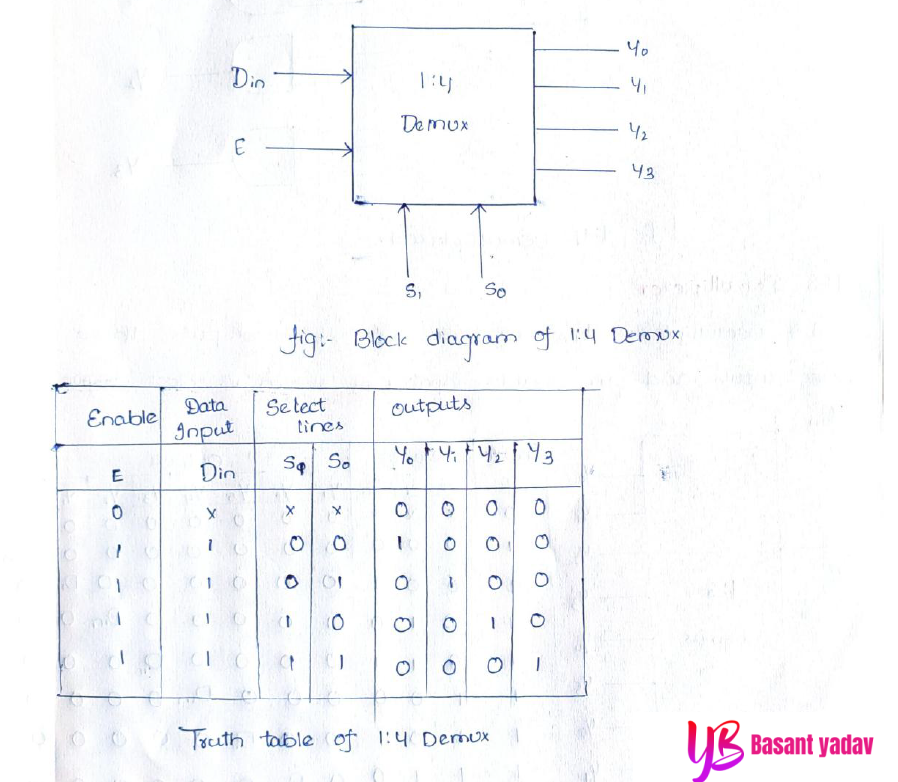 Din
E
1:4
Demux
Y0
Y1
Y2
Y3
S1 S0
fig:- Block diagram of 1:4 Demux
Enable Data Input Select lines outputs
E Din S1 S0 Y0 Y1 Y2 Y3
0 x x x 0 0 0 0
1 1 0 0 1 0 0 0
1 1 0 1 0 1 0 0
1 1 1 0 0 0 1 0
1 1 1 1 0 0 0 1
Truth table of 1:4 Demux
YB Basant yadav